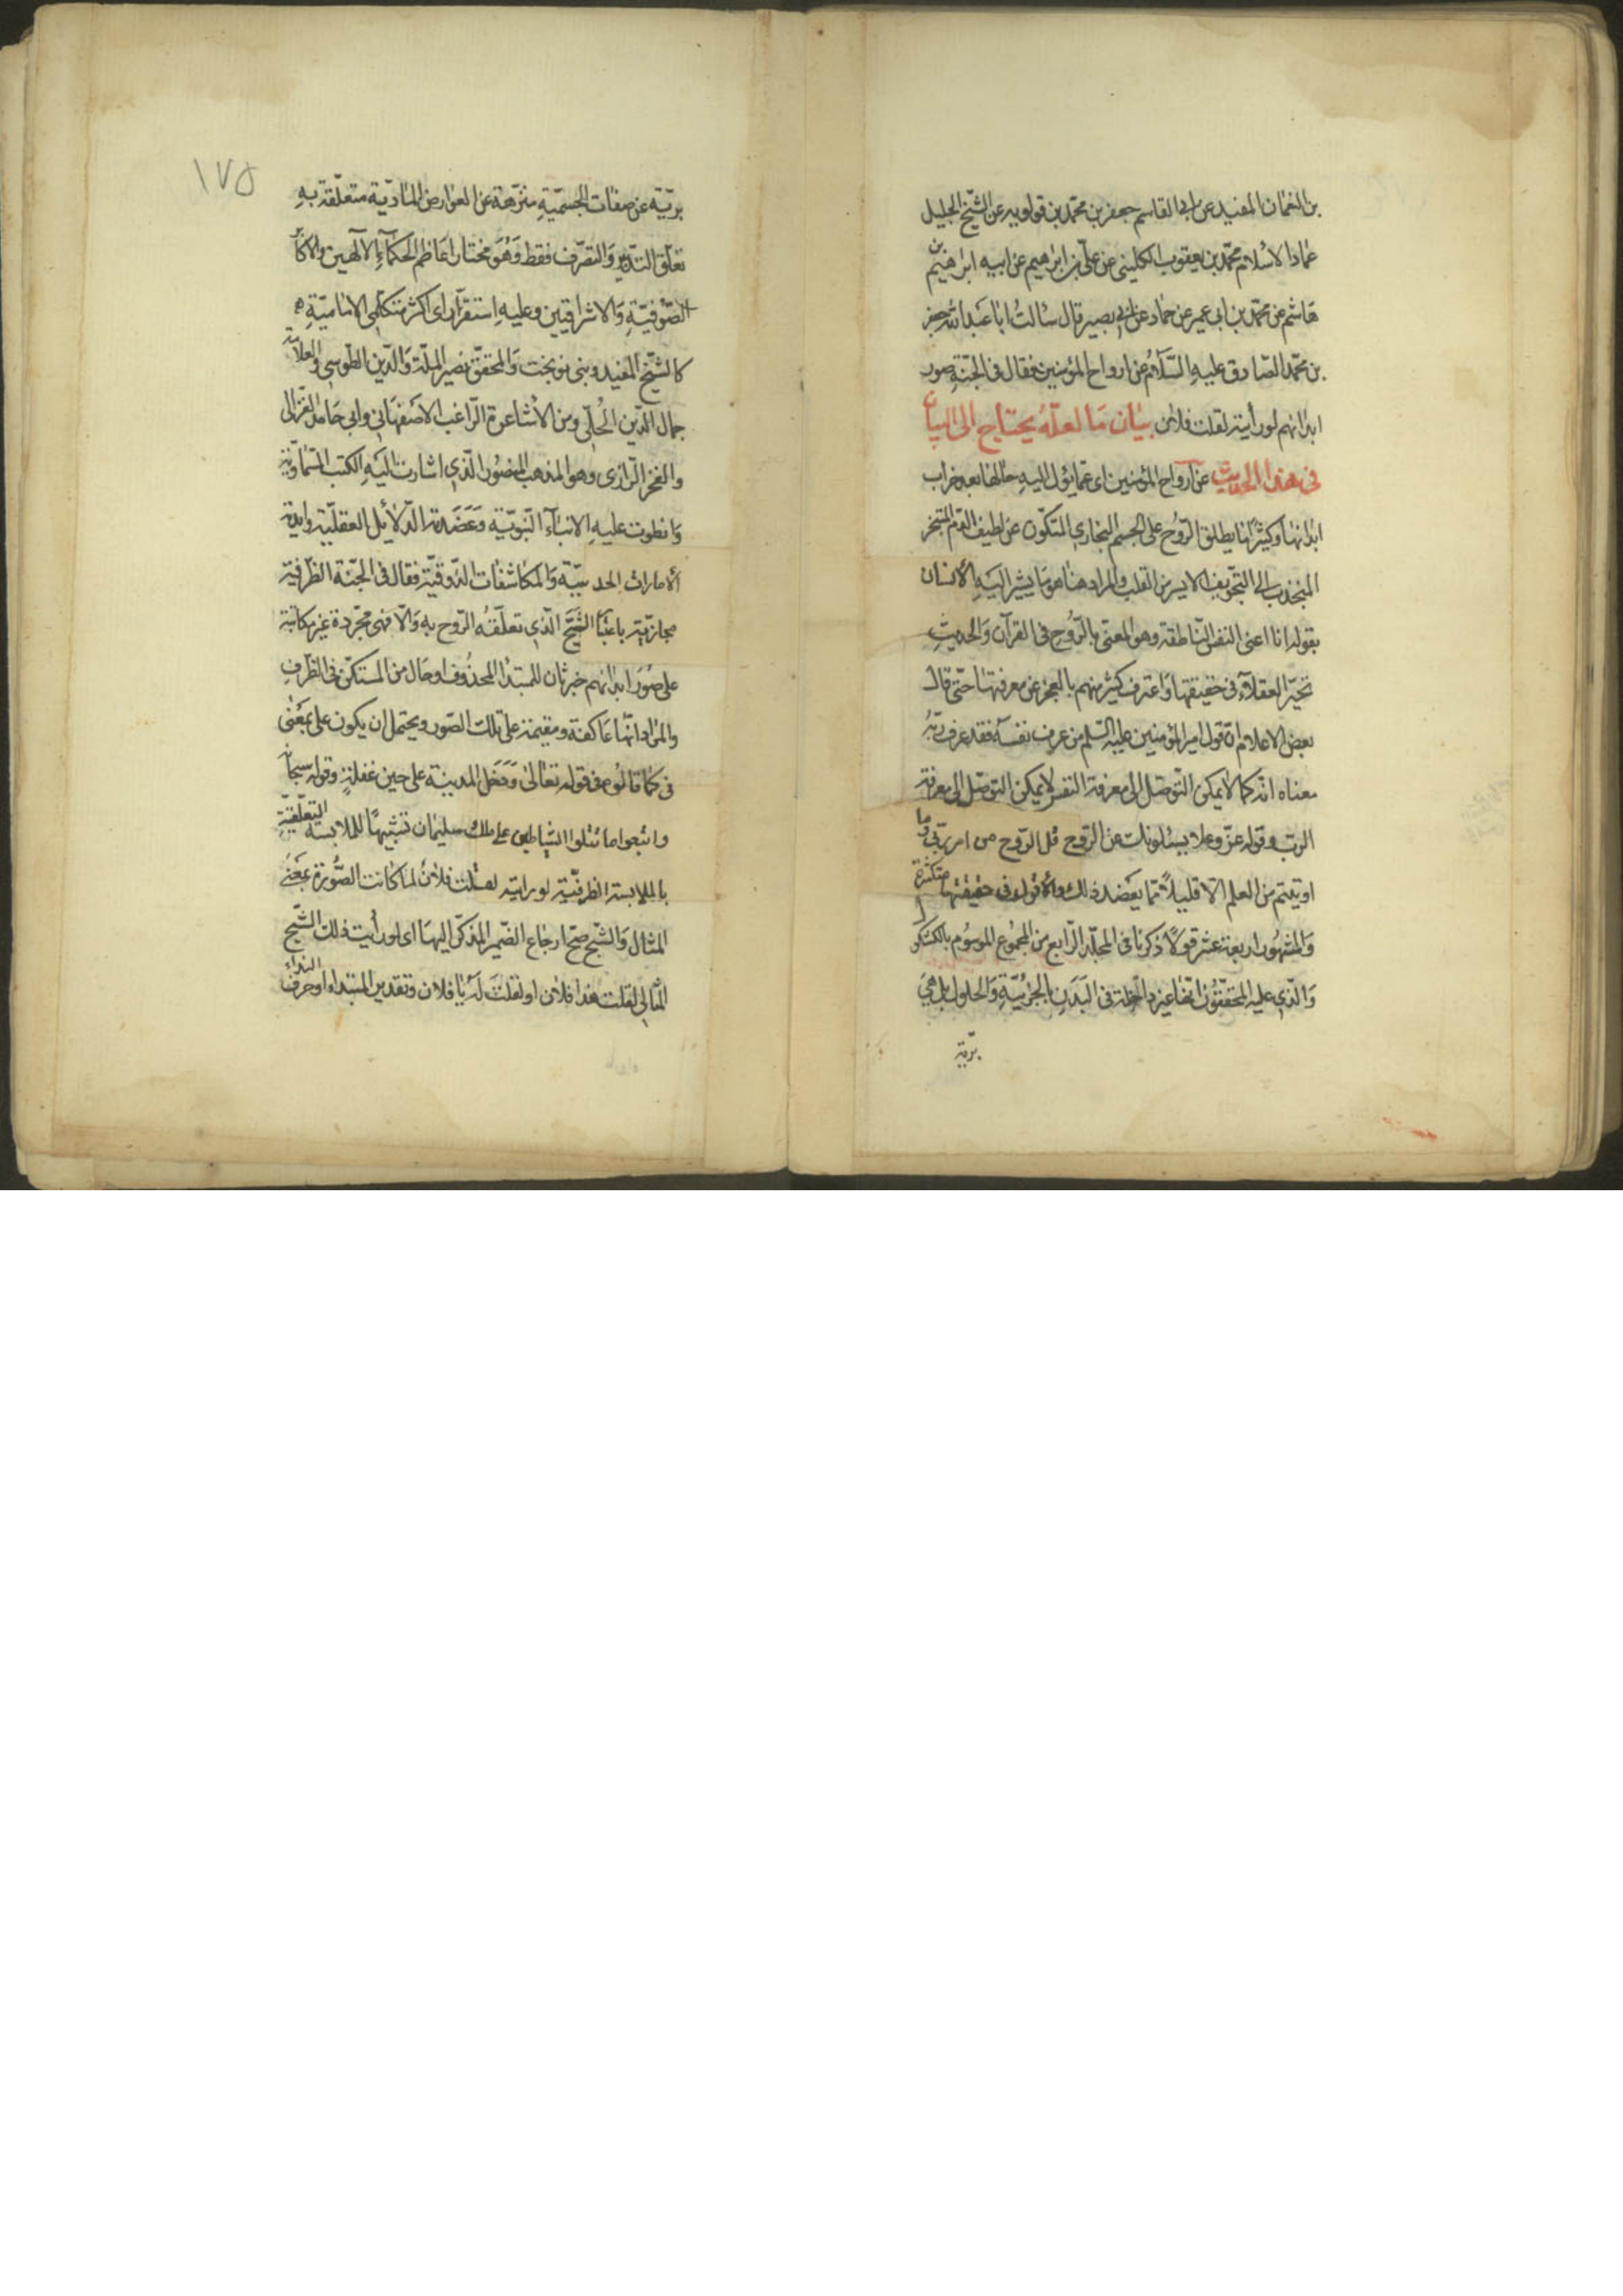 بن النعمان المفيد عن ابى القاسم جعفر بن محمّد بن قولويه عن الشّيخ الجليل
عماد الاسلام محمّد بن يعقوب الكلينى عن علىّ بن ابرهيم عن ابيه ابرهيم بن
هاشم عن محمّد بن ابى عمير عن حماد عن ابى بصير قال سالتُ ابا عبد الله جعفر
بن محمّد الصّادق عليهِ السّلامُ عن ارواح المؤمنين فقال فى الجنّةِ صور
ابدانهم لو رأيته لقلت فلان بيٰان مَا لعلّهُ يحتاج الى البيان
فى هذا الحديث عن آرواح المؤمنين اى عمّا يؤل اليهِ حالها بعد خراب
ابدانها وكثيرًا ما يطلق الرّوُح على الجسم البخارى المتكوّن عن لطيف الدّم المتبخر
المنجذب الى التجّويف الايسر من القلب والمراد هنا هو مَا يشير اليَهِ الأنسان
بقوله انا اعنى النفس النّاطقة وهو المعنىّ بالرّوُح فى القرآن وَالحديثِ
تحيّر العقلآء فى حقيقتها وَاعترف كثير منهم بالعجز عن معرفتها حتّى قال
بعض الاعلام انّ قول امير المؤمنين عليه السّلم من عرف نفسَهُ فقد عرف ربّهُ
معناه انّه كما لا يمكن التّوصّل الى معرفة النفس لا يمكن التوصّل الى معرفة
الرب وقوله عزّ وعلا يسئلونك عن الرّوح قل الرّوح من امر ربّى وما
اوتيتم من العلم الّا قليلاً ممّا يعَضد ذلك والأقوال فى حقيقتها متكثرة
وَالمشهُور اربعة عشر قولًا ذكرنا فى المجلّد الرّابع من المجمُوع الموسُوم بالكشكول
وَالّذى عليه المحقّقُون انّها غير داخلة فى البَدَنِ بالجزئيّةِ وَالحلول بل هىَ
بريّة
١٧٥
بريّة عن صفات الجسميّهِ منزّهة عن العوارض المٰاديّة متعلّقة بهِ
تعلّق التدّبير وَالتصّرّف فقط وَهُوَ مختار اعَاظم الحكمآءِ الآلهين والاكابر
الصّوفيّةِ وَالاشراقيين وعليهِ استقرّ راى اكثر متكلّمى الاماميّةِ
كالشّيخ المفيد وبنى نوبخت وَالمحقّق نصير الملّة وَالدّين الطّوسى والعلامة
جمال الدّين الحُلّى ومن الأشاعرة الرّاغب الاصَفهَانى وابى حَامد الغزالى
والفخر الرّازى وهو المذهب المنصُور الّذى اشارت اليَهِ الكتب السّماويّة
وَانطوت عليهِ الانبٰآء النّبويّة وَعَضَدته الدّلائل العقليّة وايّدته
ألأمارات الحدسيّة وَالمكاشفات الذّوقيّة فقال فى الجنّة الظرفية
مجازيّة باعتبٰار الشبَّح الّذى تعلّقُه الرّوح بهِ وَالّا فهى مجّردة غير مكانيّة
على صُوَر ابدانهم خبر ثان للمبتدٰا المحذُوف او حَال من المستكنّ فى الظّرف
والمرٰاد انّها عَاكفة ومقيمة على تلك الصّور ويحتمل ان يكون على بمعَنٰى
فى كما قالُوه فى قوله تعٰالى وَدخَل المدينة على حين غفلةٍ وقوله سبحانه
واتبعوا ما تتلوا الشياطين على ملك سليمان تشبيهًا للملابسة التعلّقيّةِ
بالملابسة الظرفيّة لو رايته لقلت فلانُ لما كانت الصُّورة بمَعنى
المثال وَالشّبح صحّ ارجاع الضّمير المذكّر اليهَا اى لو رأيت ذلك الشّبح
المثٰالى لقلت هذا فلان او لقلتَ لَهُ يٰا فلان وتقدير المبتداء او حرف النداء